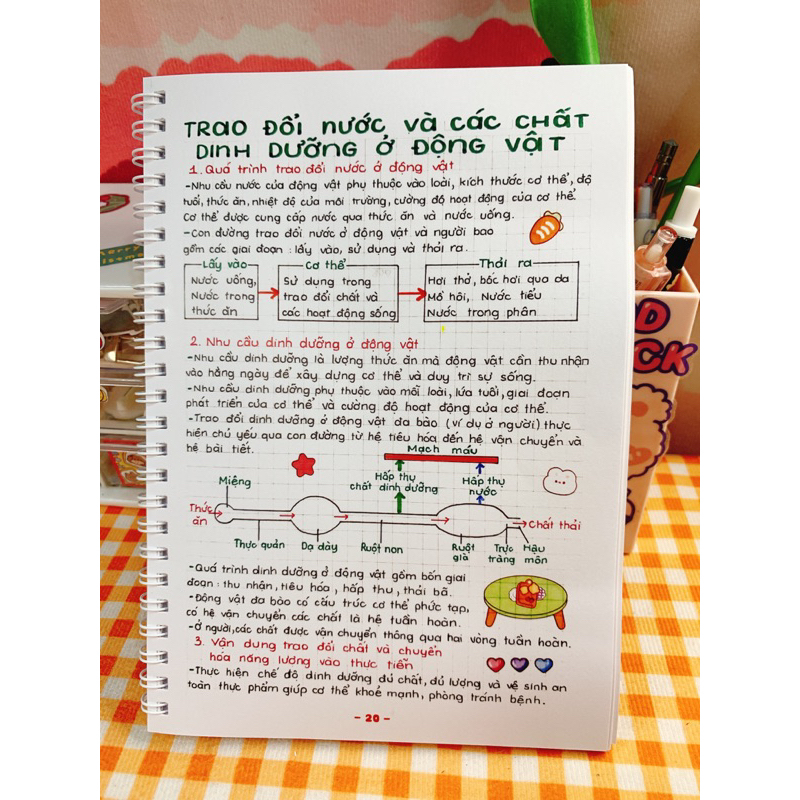 TRAO ĐỔI NƯỚC VÀ CÁC CHẤT
DINH DƯỠNG Ở ĐỘNG VẬT
1. Quá trình trao đổi nước ở động vật
-Nhu cầu nước của động vật phụ thuộc vào loài, kích thước cơ thể, độ
tuổi, thức ăn, nhiệt độ của môi trường, cường độ hoạt động của cơ thể.
Cơ thể được cung cấp nước qua thức ăn và nước uống.
-Con đường trao đổi nước ở động vật và người bao
gồm các giai đoạn: lấy vào, sử dụng và thải ra.
Lấy vào
Nước uống,
Nước trong
thức ăn
Cơ thể
Sử dụng trong
trao đổi chất và
các hoạt động sống
Thải ra
Hơi thở, bốc hơi qua da
Mồ hôi, Nước tiểu
Nước trong phân
2. Nhu cầu dinh dưỡng ở động vật
-Nhu cầu dinh dưỡng là lượng thức ăn mà động vật cần thu nhận
vào hằng ngày để xây dựng cơ thể và duy trì sự sống.
-Nhu cầu dinh dưỡng phụ thuộc vào mỗi loài, lứa tuổi, giai đoạn
phát triển của cơ thể và cường độ hoạt động của cơ thể.
-Trao đổi dinh dưỡng ở động vật đa bào (ví dụ ở người) thực
hiện chủ yếu qua con đường từ hệ tiêu hóa đến hệ vận chuyển và
hệ bài tiết.
Mạch máu
Miệng
Hấp thụ
chất dinh dưỡng
Hấp thụ
nước
Thức
ăn
Chất thải
Thực quản
Dạ dày
Ruột non
Ruột
già
Trực
tràng
Hậu
môn
-Quá trình dinh dưỡng ở động vật gồm bốn giai
đoạn: thu nhận, tiêu hóa, hấp thu, thải bã.
-Động vật đa bào có cấu trúc cơ thể phức tạp,
có hệ vận chuyển các chất là hệ tuần hoàn.
-Ở người, các chất được vận chuyển thông qua hai vòng tuần hoàn.
3. Vận dụng trao đổi chất và chuyển
hóa năng lượng vào thực tiễn
-Thực hiện chế độ dinh dưỡng đủ chất, đủ lượng và vệ sinh an
toàn thực phẩm giúp cơ thể khoẻ mạnh, phòng tránh bệnh.
- 20 -